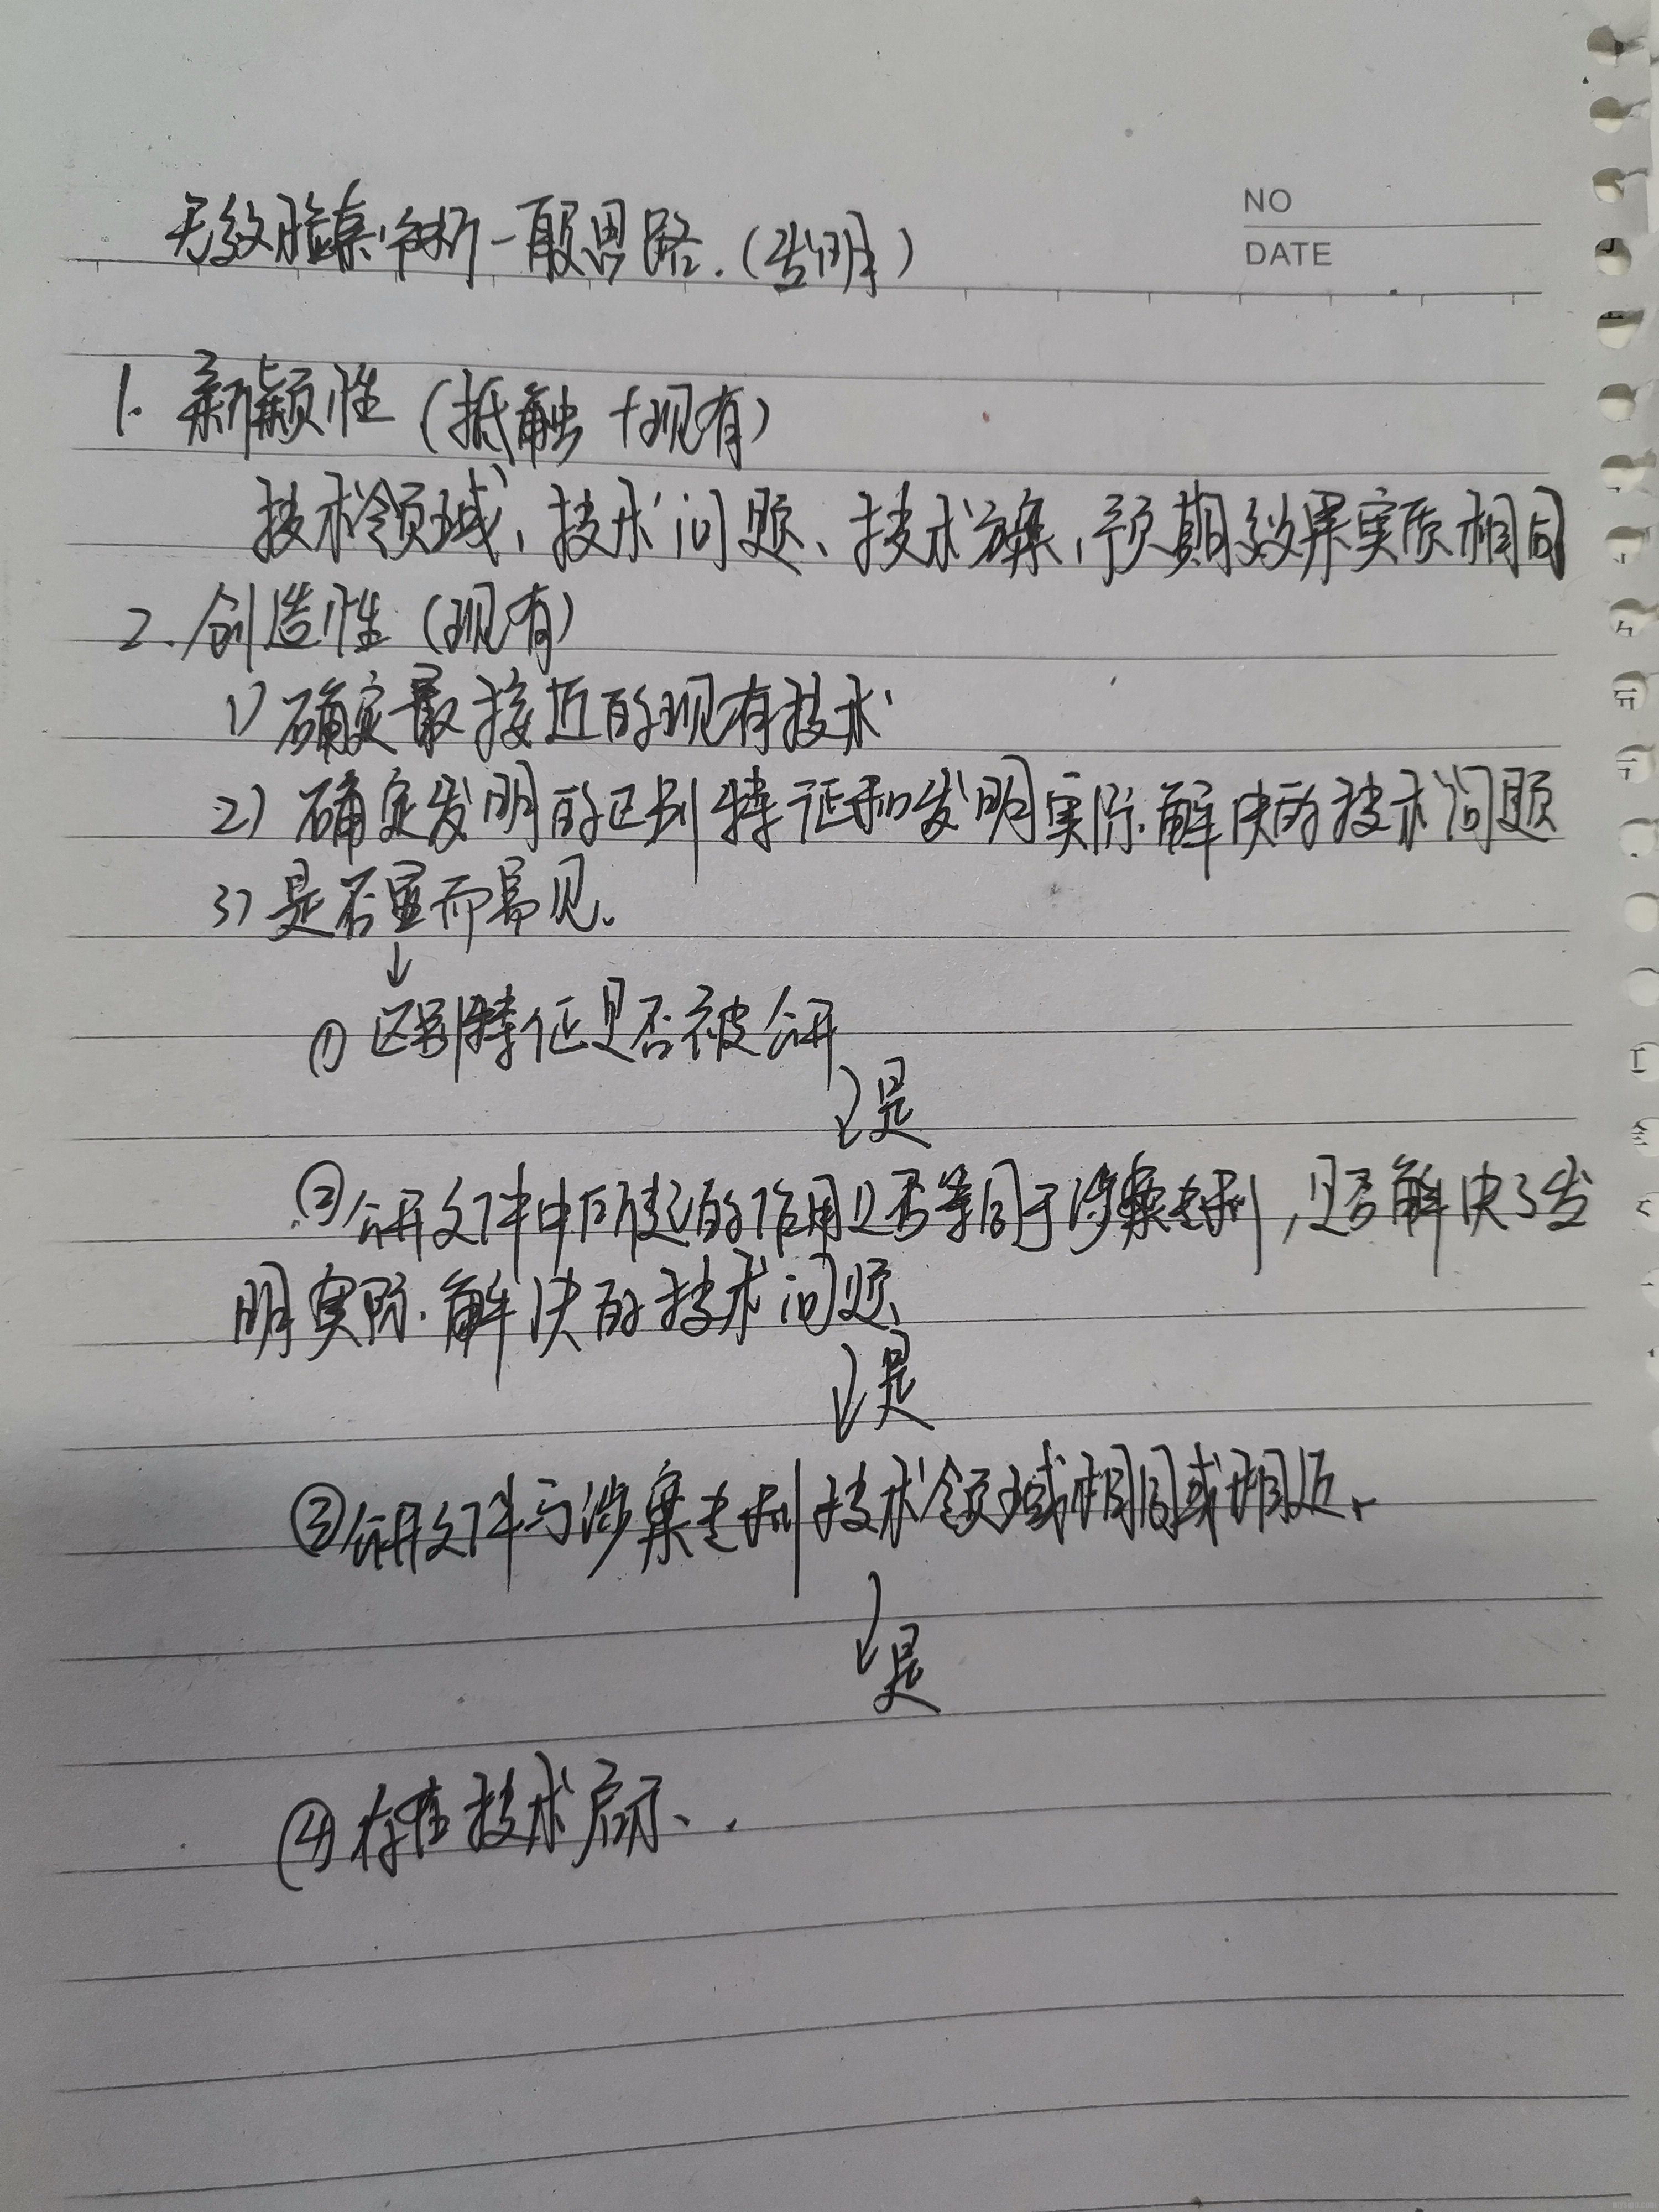 NO
DATE
无效检索分析一般思路.(发明)
1. 新颖性 (抵触+现有)
技术领域、技术问题、技术方案、预期效果实质相同
2. 创造性 (现有)
1) 确定最接近的现有技术
2) 确定发明的区别特征和发明实际解决的技术问题
3) 是否显而易见。
↓
① 区别特征是否被公开
↓是
②公开文件中所起的作用是否等同于涉案专利,是否解决了发
明实际解决的技术问题、
↓是
③公开文件与涉案专利技术领域相同或相近、
↓是
④存在技术启示、.